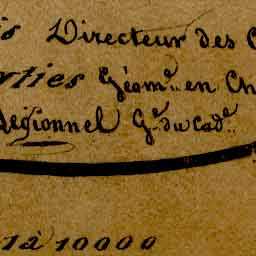 is Directeur des C
rties Géom.. en Ch
Régionnel G.. du Cad..
1 à 10000